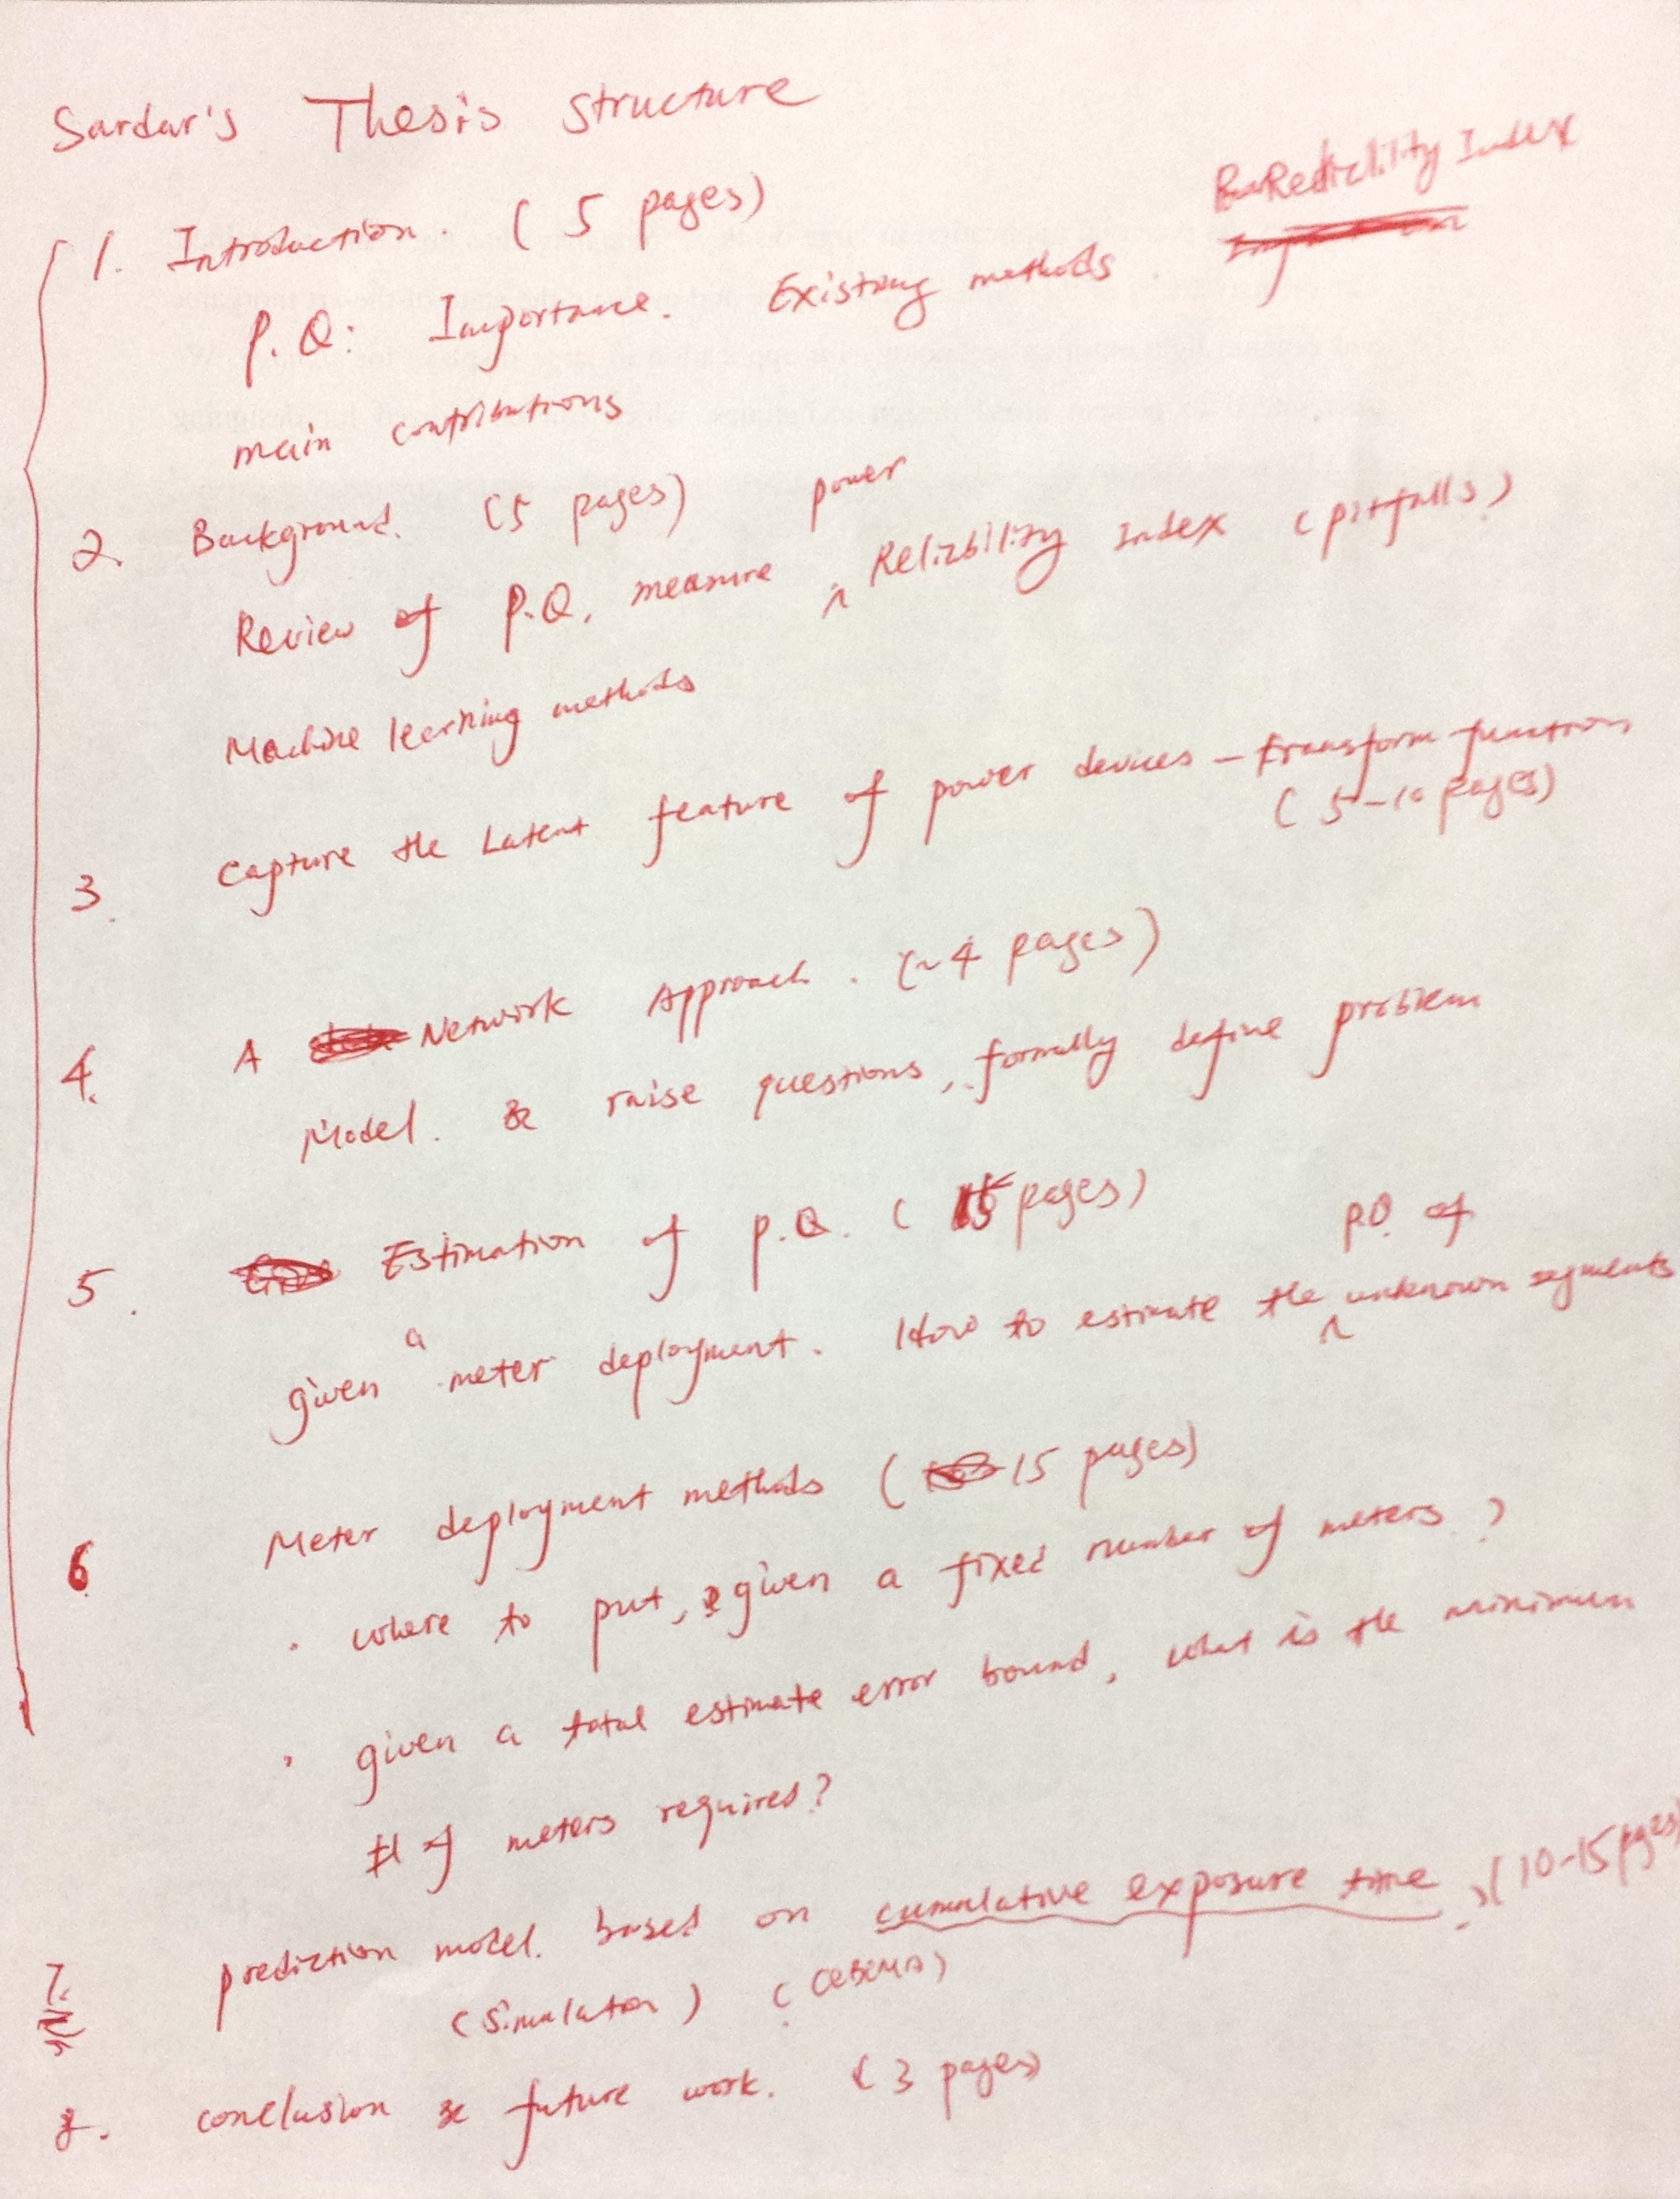 Sardar's Thesis structure
Index
1. Introduction. ( 5 pages)
P.Q: Importance. Existing methods.
main contributions
2. Background. (5 pages)
power
Review of P.Q. measure ^ Reliability Index (pitfalls)
Machine learning methods
3. Capture the Latent feature of power devices - transform function
( 5-10 pages)
4. A Network Approach. (~4 pages)
Model. & raise questions, formally define problem
5. Estimation of P.Q. ( 15 pages)
P.Q. of
given a meter deployment. How to estimate the ^ unknown segments
6 Meter deployment methods ( 15 pages)
. where to put, given a fixed number of meters?
. given a total estimate error bound, what is the minimum
# of meters required?
7. prediction model. based on cumulative exposure time, (10-15 pages)
(Simulator) (CBEMA)
8. conclusion & future work. (3 pages)